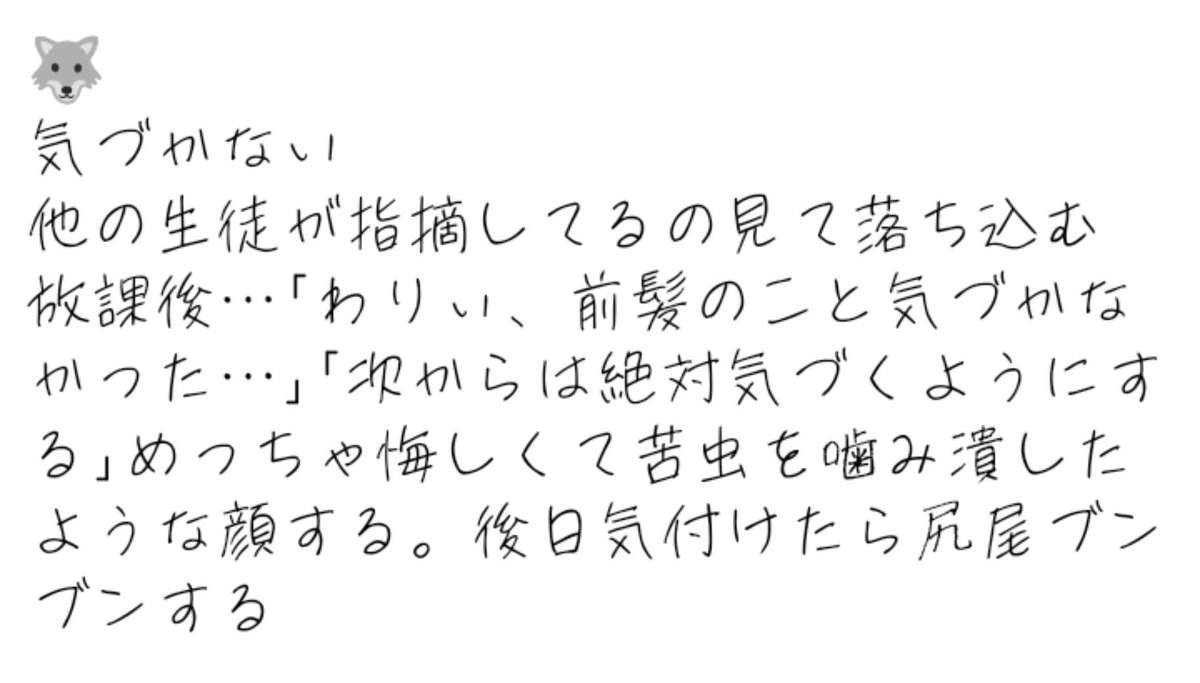 気づかない
他の生徒が指摘してるの見て落ち込む
放課後…「わりぃ、前髪のこと気づかな
かった…」「次からは絶対気づくようにす
る」めっちゃ悔しくて苦虫を噛み潰した
ような顔する。後日気付けたら尻尾ブン
ブンする